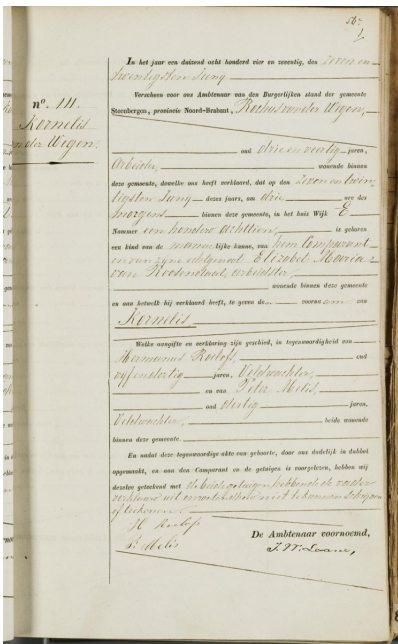 56.
1
In het jaar een duizend acht honderd vier en zeventig, den zeven en
twintigsten Juny
Verscheen voor ons Ambtenaar van den Burgerlijken stand der gemeente
Steenbergen, provincie Noord-Brabant, Rochus van der Wegen,
oud drie en veertig jaren,
Arbeider, wonende binnen
deze gemeente, dewelke ons heeft verklaard, dat op den zeven en twin-
tigsten Juny dezes jaars, om drie ure des
morgens binnen deze gemeente, in het huis Wijk E
Nummer een honderd achttien, is geboren
een kind van de mannelijke kunne, van hem Comparant
en van zyne echtgenoot Elizabet Maria
van Roosendaal, arbeidster,
wonende binnen deze gemeente
en aan hetwelk hij verklaard heeft, te geven de voornaam van
Kornelis
Welke aangifte en verklaring zijn geschied, in tegenwoordigheid van
Hermanus Roelofs, oud
vyfendertig jaren, Veldwachter,
en van Piter Melis,
oud dertig jaren,
Veldwachter, beide wonende
binnen deze gemeente
En nadat deze tegenwoordige akte van geboorte, door ons dadelijk in dubbel
opgemaakt, en aan den Comparant en de getuigen is voorgelezen, hebben wij
dezelve geteekend met de beide getuigen, hebbende de vader
verklaard uit onwetendheid niet te kunnen schrijven
of teekenen
H Roelofs
P. Melis
De Ambtenaar voornoemd,
n°. 111.
Kornelis
van der Wegen.